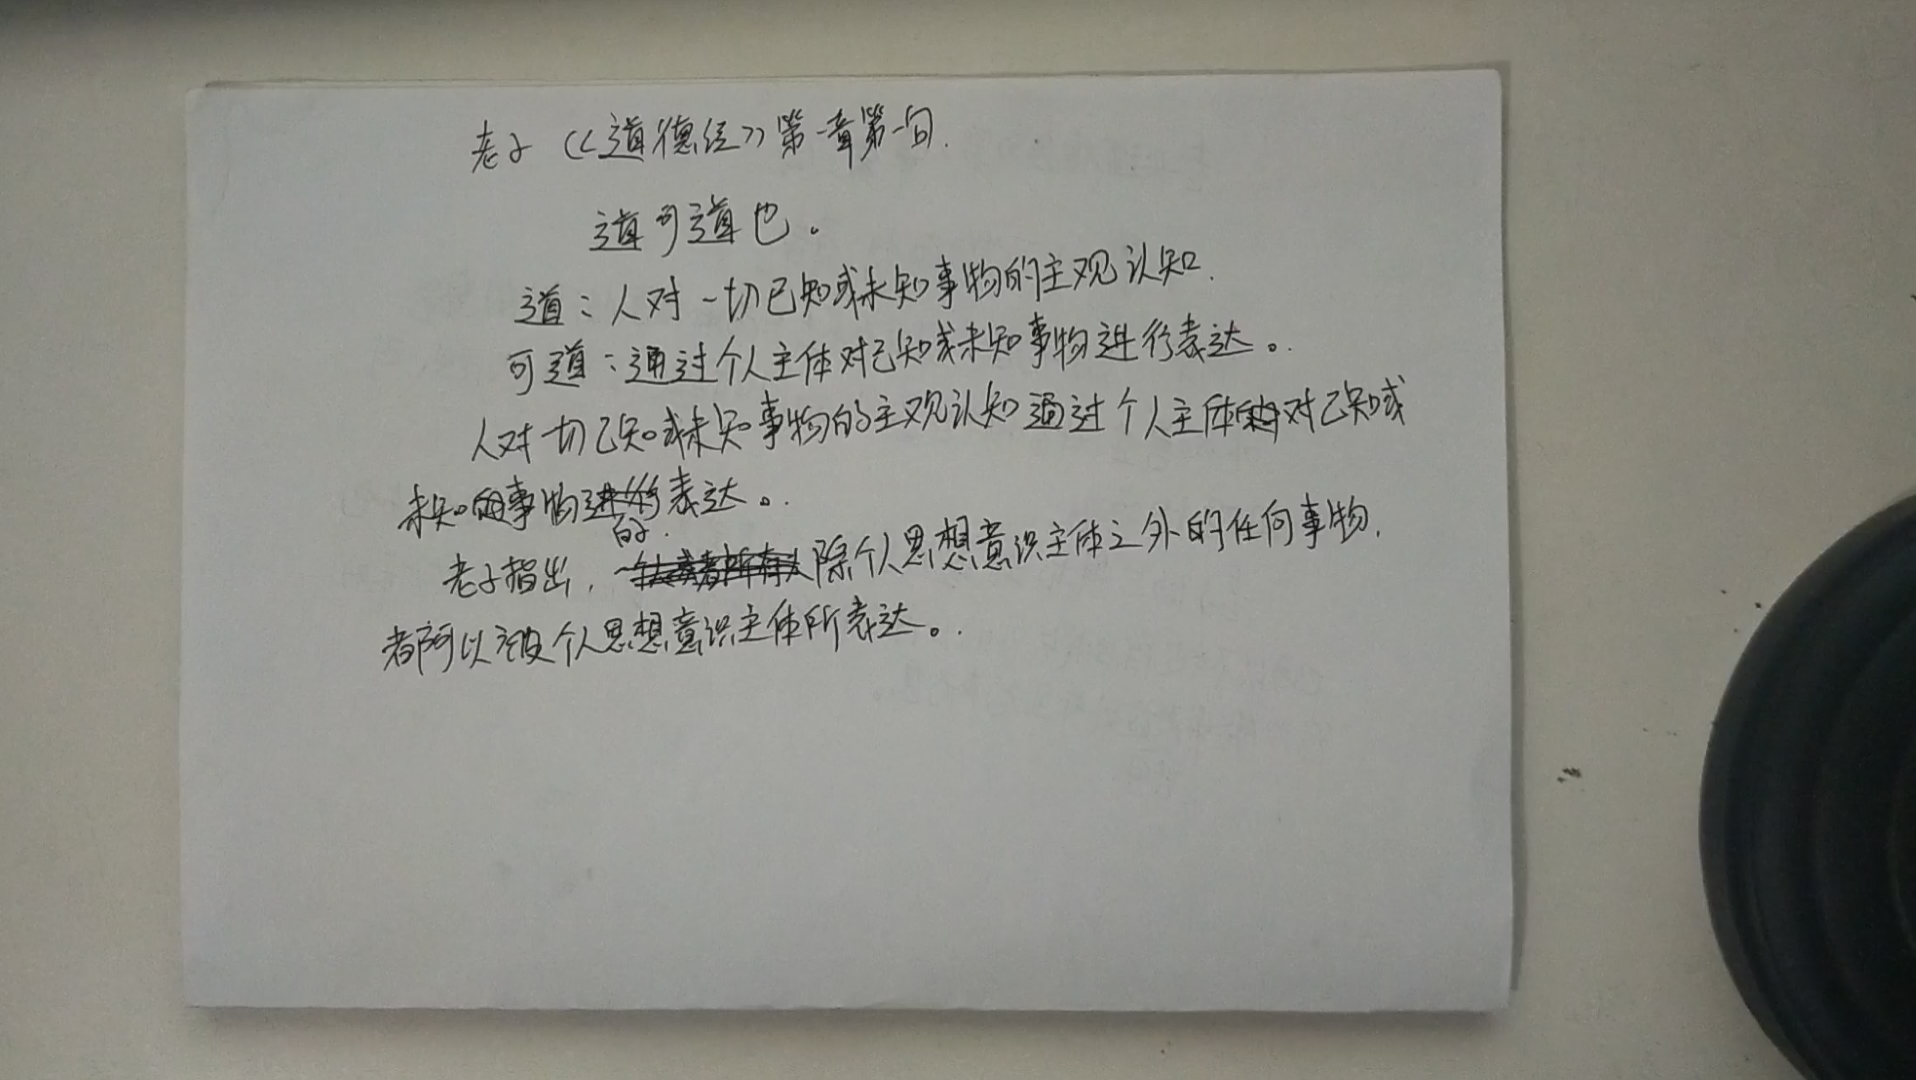 老子《道德经》第一章第一句.
道可道也。
道：人对一切已知或未知事物的主观认知.
可道：通过个人主体对已知或未知事物进行表达。.
人对一切已知或未知事物的主观认知通过个人主体对已知或
未知事物的表达。.
老子指出，除个人思想意识主体之外的任何事物.
都可以被个人思想意识主体所表达。.